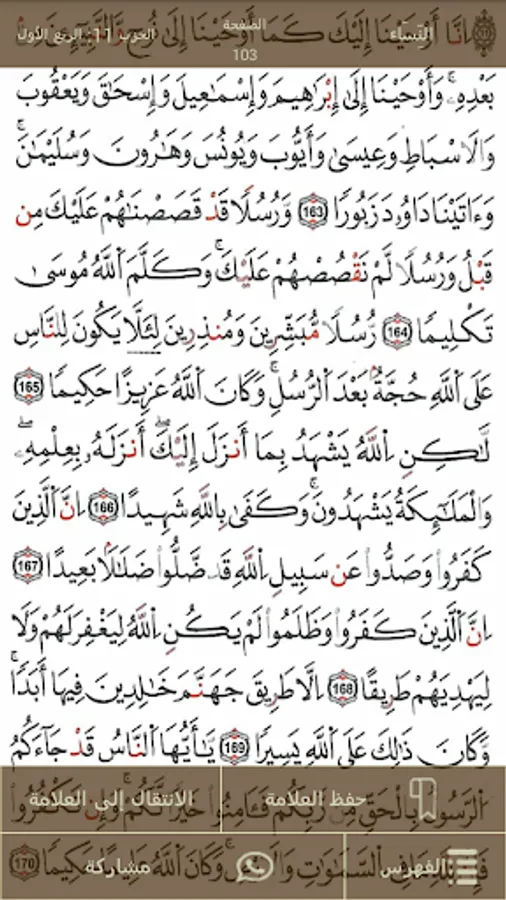 الحزب 11: الربع الأول
الصفحة
103
النساء
إِنَّا أَوْحَيْنَا إِلَيْكَ كَمَا أَوْحَيْنَا إِلَىٰ نُوحٍ وَالنَّبِيِّـۧنَ مِنۢ
بَعْدِهِۦۚ وَأَوْحَيْنَا إِلَىٰ إِبْرَاهِيمَ وَإِسْمَاعِيلَ وَإِسْحَاقَ وَيَعْقُوبَ
وَالَاسْبَاطِ وَعِيسَىٰ وَأَيُّوبَ وَيُونُسَ وَهَارُونَ وَسُلَيْمَانَۚ
وَءَاتَيْنَا دَاوُۥدَ زَبُورًا 163 وَرُسُلًا قَدْ قَصَصْنَاهُمْ عَلَيْكَ مِن
قَبْلُ وَرُسُلًا لَّمْ نَقْصُصْهُمْ عَلَيْكَۚ وَكَلَّمَ اَللَّهُ مُوسَىٰ
تَكْلِيمًا 164 رُّسُلًا مُّبَشِّرِينَ وَمُنذِرِينَ لِئَلَّا يَكُونَ لِلنَّاسِ
عَلَى اَللَّهِ حُجَّةٌۢ بَعْدَ اَلرُّسُلِۚ وَكَانَ اَللَّهُ عَزِيزًا حَكِيمًا 165
لَّٰكِنِ اِللَّهُ يَشْهَدُ بِمَا أَنزَلَ إِلَيْكَۖ أَنزَلَهُۥ بِعِلْمِهِۦۖ
وَالْمَلَٰٓئِكَةُ يَشْهَدُونَۚ وَكَفَىٰ بِاللَّهِ شَهِيدًا 166 اِنَّ اَلَّذِينَ
كَفَرُواْ وَصَدُّواْ عَن سَبِيلِ اِللَّهِ قَد ضَّلُّواْ ضَلَٰلًۢا بَعِيدًا 167
اِنَّ اَلَّذِينَ كَفَرُواْ وَظَلَمُواْ لَمْ يَكُنِ اِللَّهُ لِيَغْفِرَ لَهُمْ وَلَا
لِيَهْدِيَهُمْ طَرِيقًا 168 اِلَّا طَرِيقَ جَهَنَّمَ خَٰلِدِينَ فِيهَا أَبَدًاۚ
وَكَانَ ذَٰلِكَ عَلَى اَللَّهِ يَسِيرًا 169 يَٰٓأَيُّهَا اَلنَّاسُ قَدْ جَآءَكُمُ
اُلرَّسُولُ بِالْحَقِّ مِن رَّبِّكُمْ فَـَٔامِنُواْ خَيْرًا لَّكُمْۚ وَإِن تَكْفُرُواْ
حفظ العلامة
الانتقال إلى العلامة
فَإِنَّ لِلَّهِ مَا فِي اِلسَّمَٰوَٰتِ وَالَارْضِۚ وَكَانَ اَللَّهُ عَلِيمًا حَكِيمًا 170
الفهرس
مشاركة